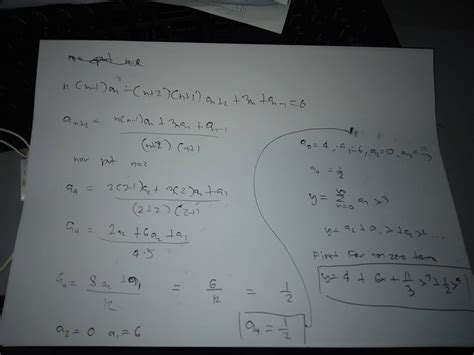 n(n-1)an - (n+2)(n+1) an+2 + 3n an + an-1 = 0
an+2 = n(n-1)an + 3n an + an-1 / (n+2) (n+1)
now put n=2
a4 = 2(2-1)a2 + 3(2)a2 + a1 / (2+2) (2+1)
a4 = 2a2 + 6a2 + a1 / 4.3
a4 = 8a2 + a1 / 12 = 6/12 = 1/2
a2 = 0 a1 = 6
a4 = 1/2
a0 = 4, a1 = 6, a2 = 0, a3 = 11/3
a4 = 1/2
First four non zero term
y = 4 + 6x + 11/3 x3 + 1/2 x4